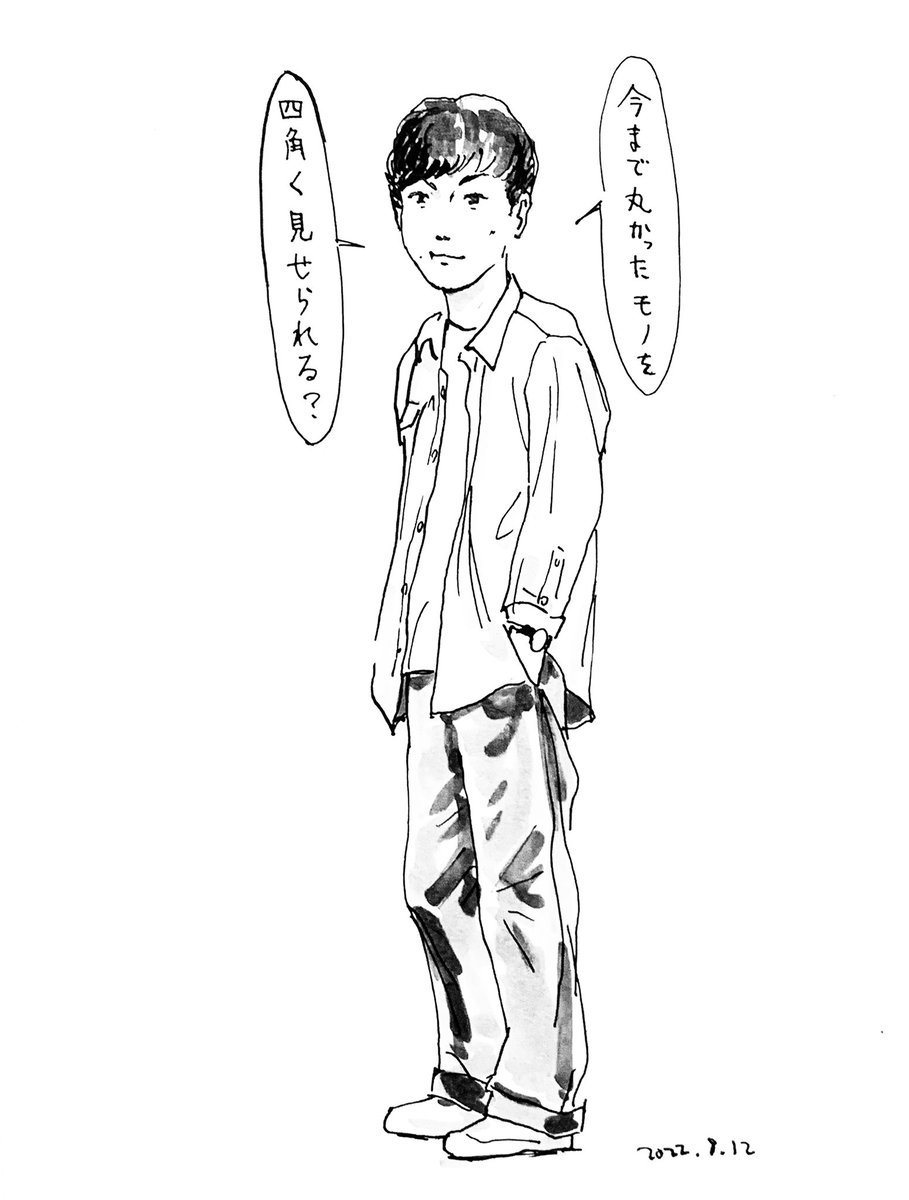 今まで丸かったモノを
四角く見せられる？
2022.8.12